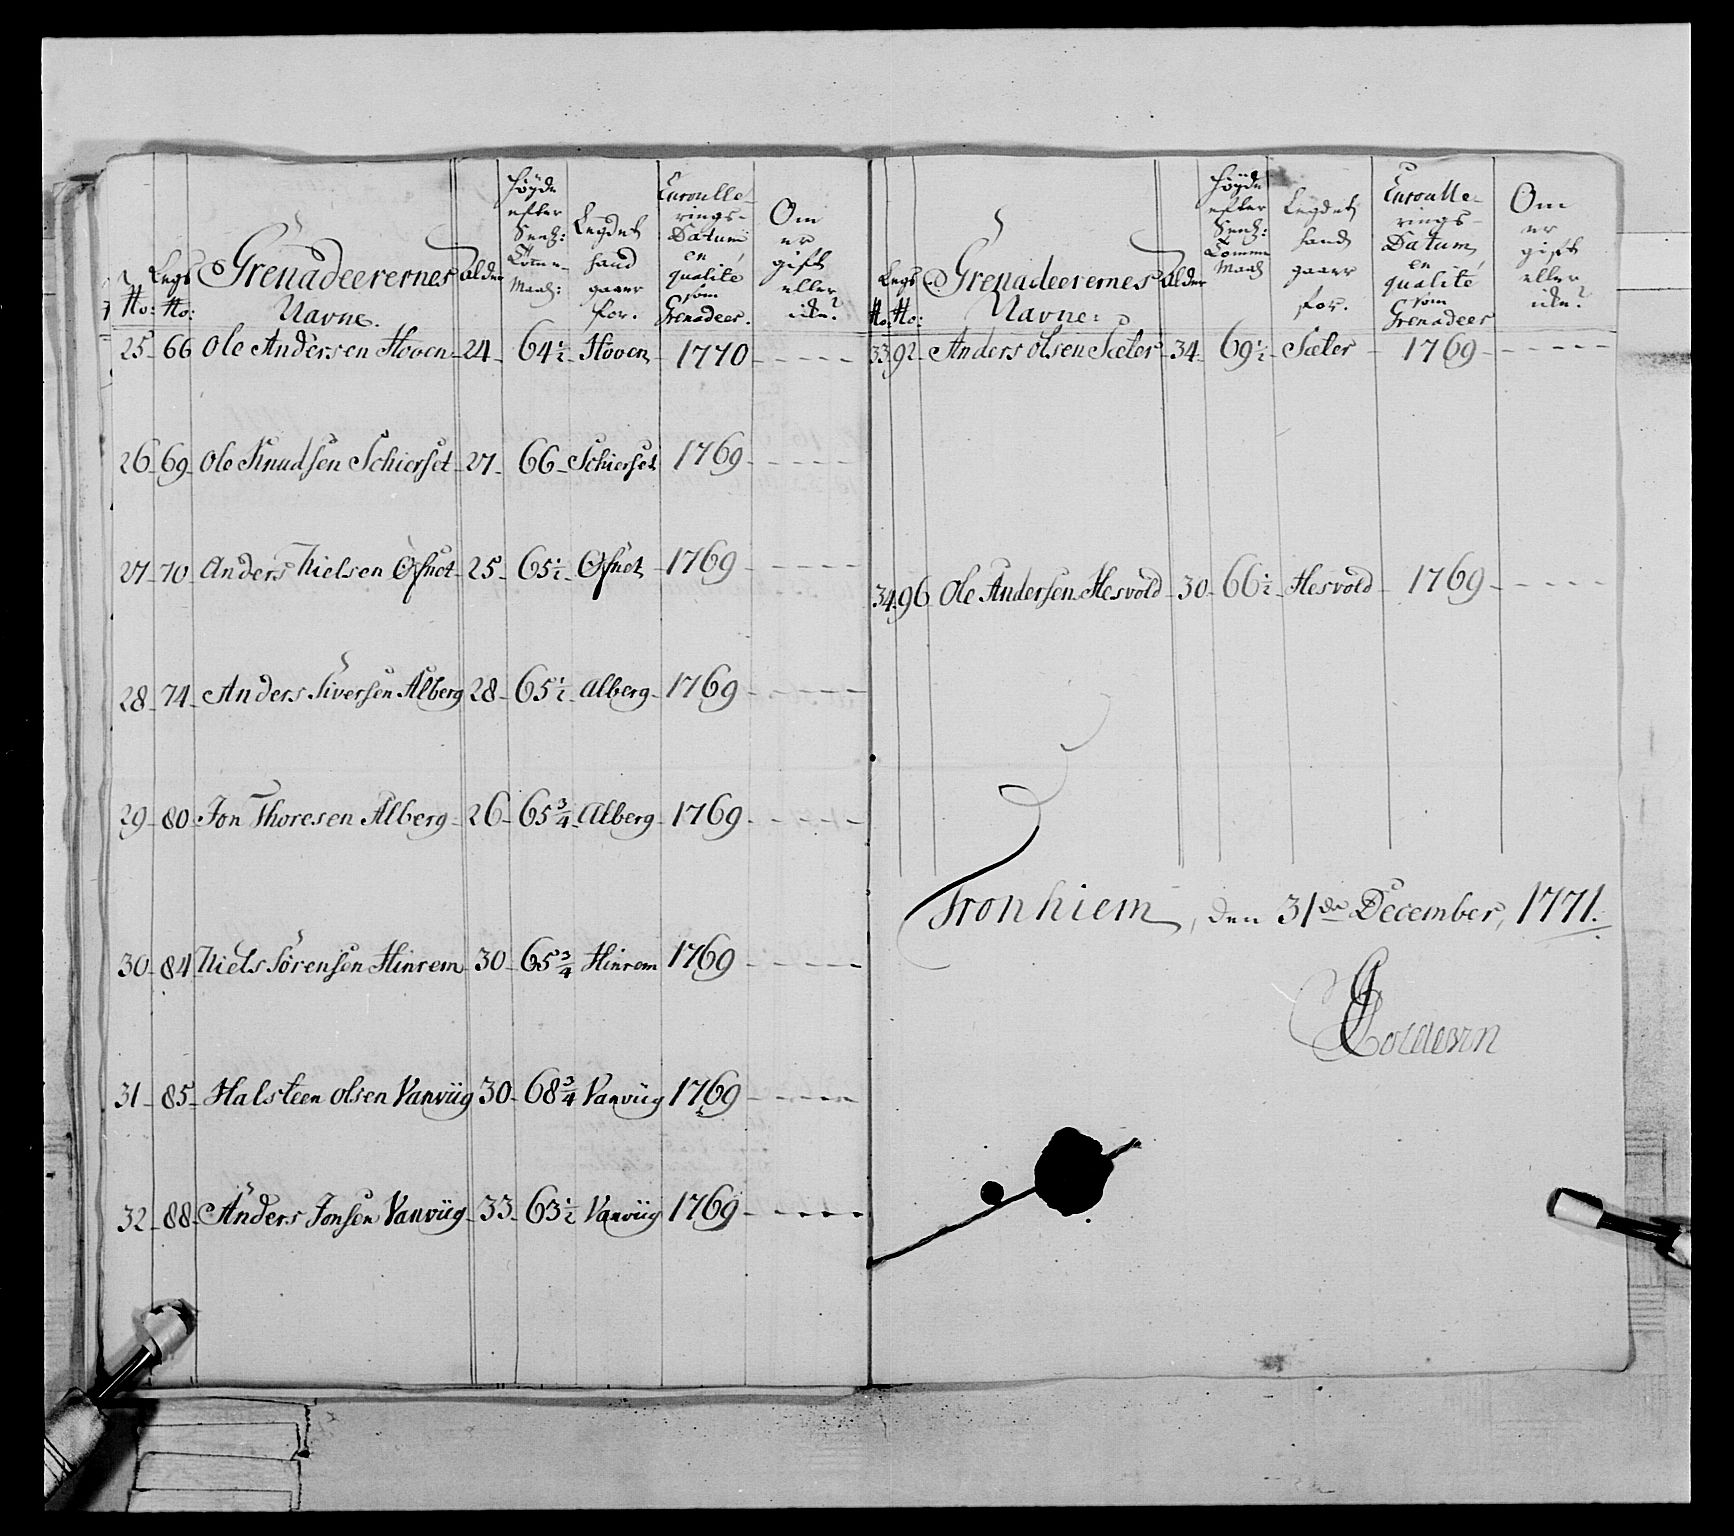 No: Legs No: Grenadeerernes Navne. Alder Høyde efter Senk: Tomme Maal: Legdet hand gaaer for. Enroulle-rings-Datum en qualité som Grenadeer. Om er gift eller ikke?
25 - 66 Ole Andersen Hoven - 24 - 64 1/2 Hoven 1770 - - - - -
26 - 69 Ole Knudsen Schierset - 27 - 66 - Schierset 1769 - - - - -
27 - 70 Anders Nielsen - 25 - 65 1/2 - 1769 - - - - -
28 - 74 - Anders Siversen Alberg 28 - 65 1/2 - Alberg - 1769 - - - - -
29 - 80 Jon Thoresen Alberg - 26 - 65 3/4 - Alberg - 1769 - - - - -
30 - 84 Niels Sørensen Hinrem - 30 - 65 3/4 Hinrem 1769 - - - - -
31 - 85 - Halsteen Olsen Vanviig 30 - 68 3/4 Vanviig 1769 - - - - -
32 - 88 - Anders Jonsen Vanviig - 33 - 63 1/2 Vanviig 1769 - - - - -
No: Legs No: Grenadeerernes Navne: Alder Høyde efter Senk: Tomme Maal Legdet hand gaaer for. Enroulle-rings-Datum en qualité som Grenadeer Om er gift eller ikke?
33 92 - Anders Olsen Sæter - 34 - 69 1/2 - Sæter - 1769 - - - - -
34 96 Ole Andersen Hesvold - 30 - 66 1/2 - Hesvold 1769 - - - - -
Tronhiem, den 31de December, 1771.